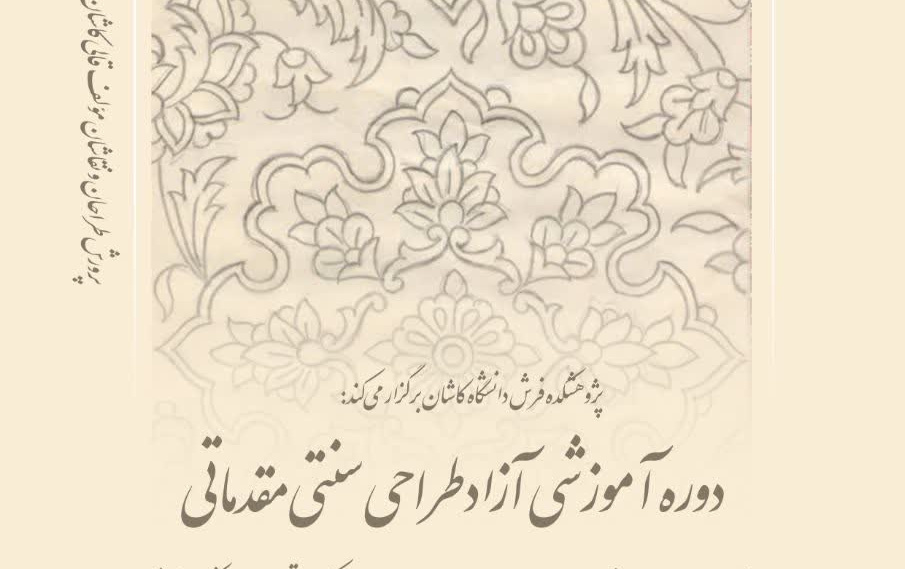 پرورش طراحان و نقاشان مؤلف قالی کاشان
پژوهشکده فرش دانشگاه کاشان برگزار می‌کند:
دوره آموزشی آزاد طراحی سنتی مقدماتی